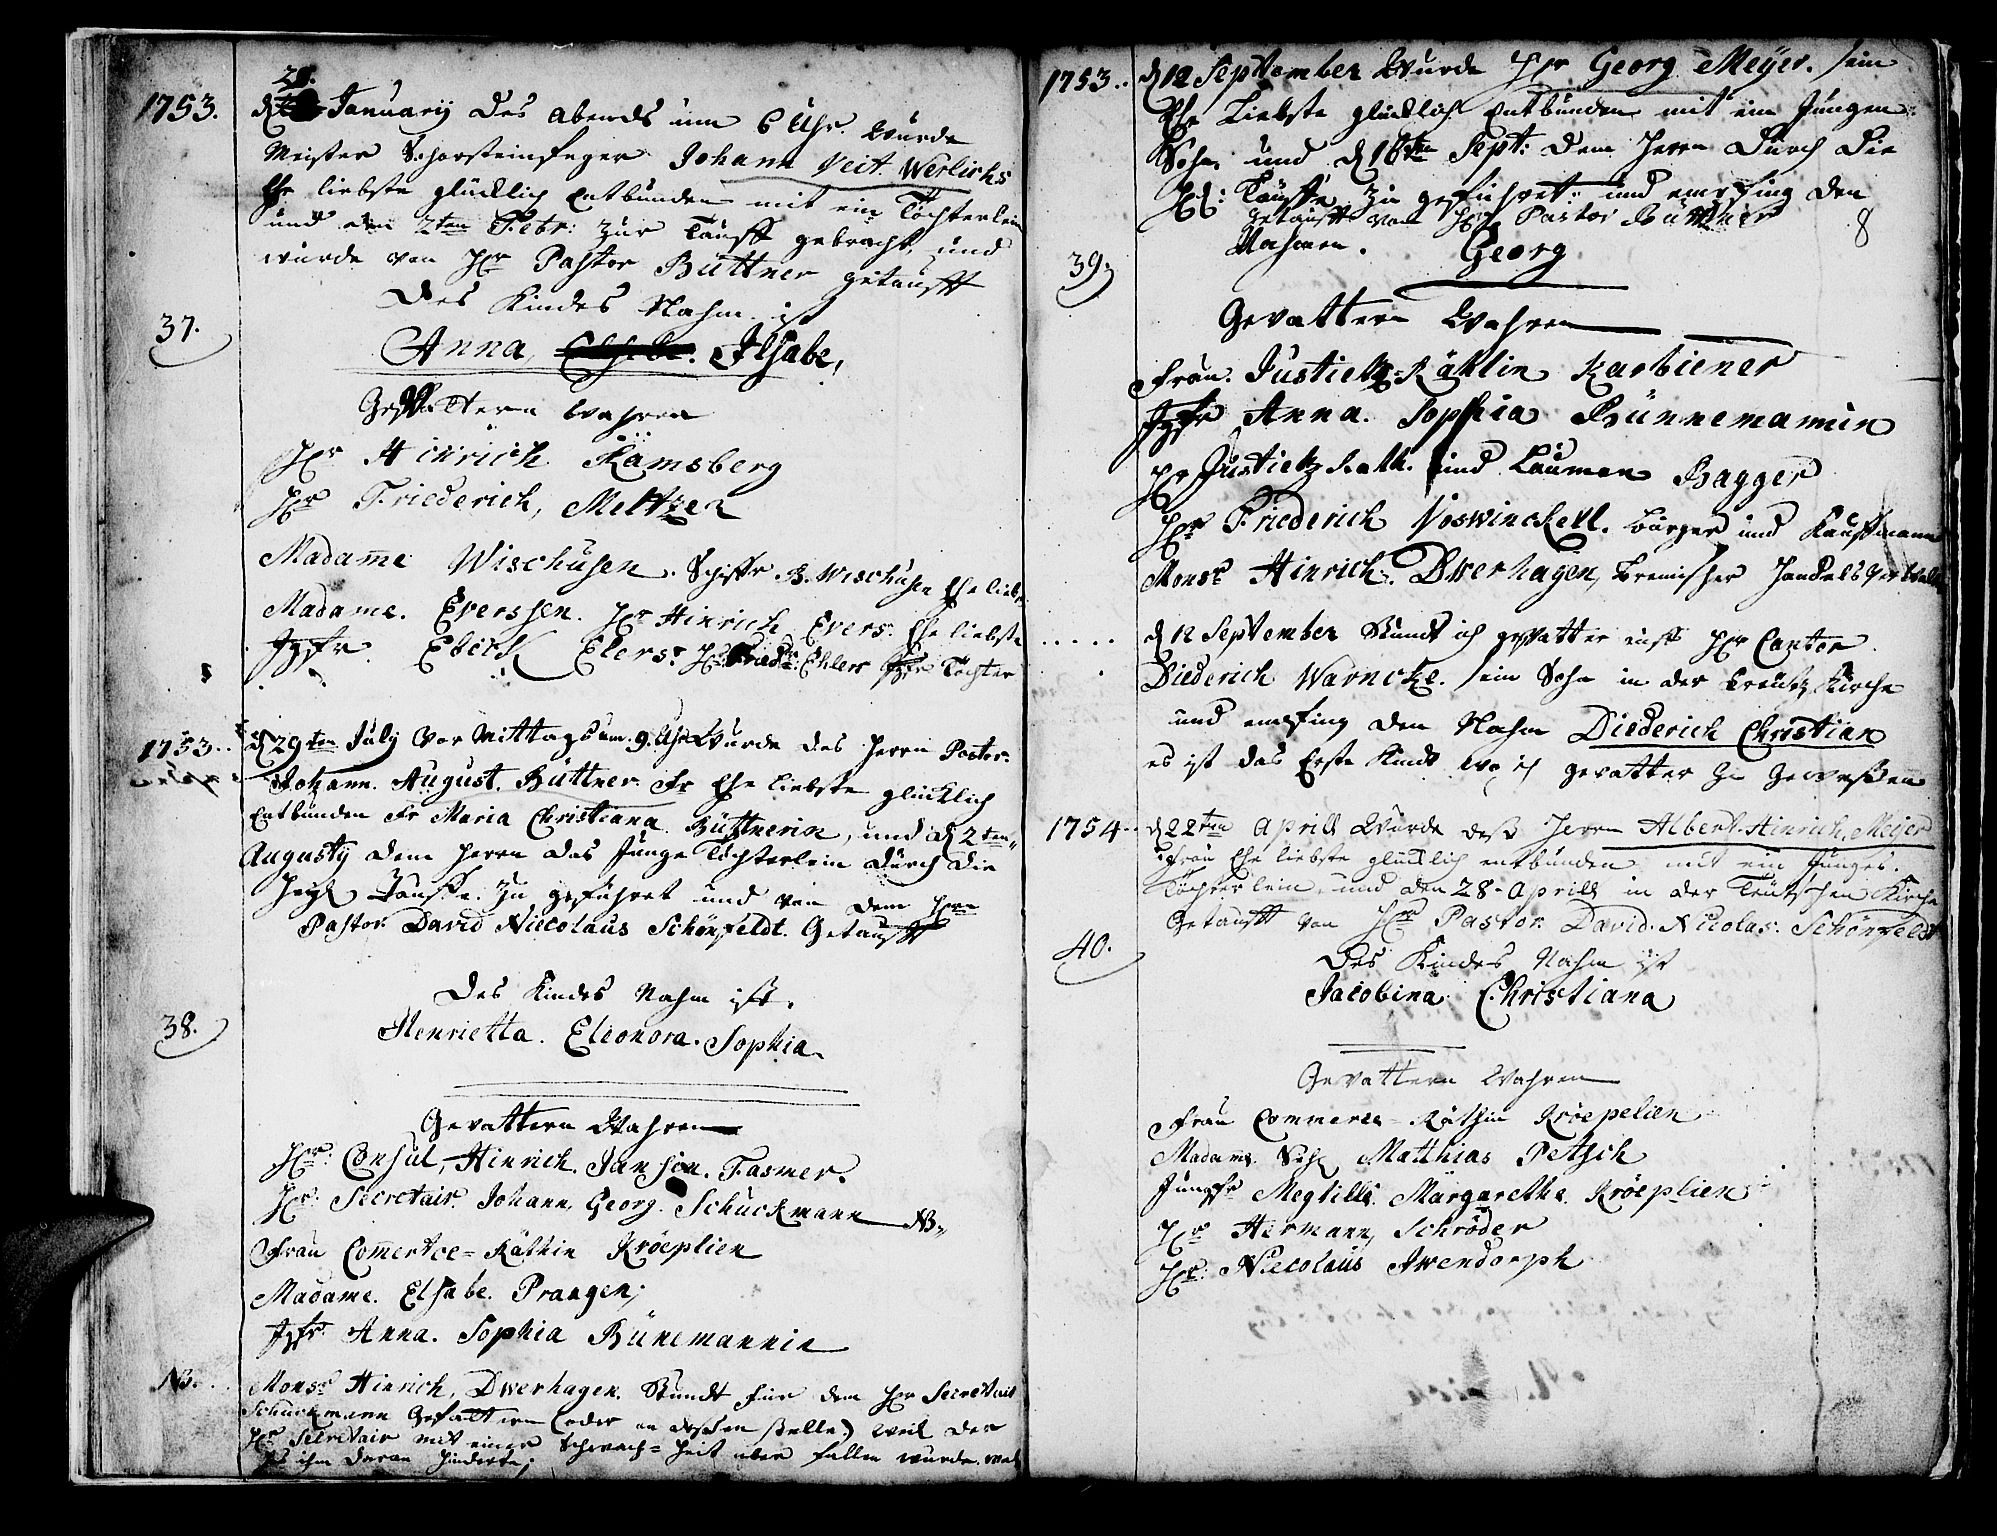 28.
1753. d Januarij des abends um 6 Uhr wurde
Meister Schorsteinfeger Johann Veit Werlichs
Ehe liebste glücklich Entbunden mit ein Töchterlein
und den 2ten Febr: zur Tauff gebracht, und
wurde von Hr Pastor Büttner getaufft
Des Kindes Nahm ist
37.
Anna, Ilsabe,
Gevattern wahren
Hr Hinrich Kämsberg
Hr Friederich, Meltzer
Madame Wischusen. Schiffr B. Wischusen Ehe liebs
Madame. Eversen. Hr Hinrich Evers. Ehe liebste
Jgfr Ebick Elers. Hr Friedr: Ehlers Töchter
1753.. d 29ten July Vor Mittags um 9 Uhr Wurde des Herrn Pastor
Johann. August. Büttner. Fr Ehe liebste glücklich
Entbunden Fr Maria Christiana Büttnerin, und d 2ten
Augusty dem Herrn das Junge Töchterlein durch die
Tauffe zu geführet und von dem Hrn
Pastor David Niecolaus Schönfeldt. Getaufft
Des Kindes Nahm ist.
38.
Henrietta. Eleonora. Sophia.
Gevattern Wahren
Hr. Consul, Hinrich. Janson. Fasmer.
Hr. Secretair. Johann, Georg. Schuckmann NB.
Frau Comertce-Räthin Kröeplien
Madame. Elsabe. Prangen;
Jgfr. Anna. Sophia Bünemannin
NB. Monsr Hinrich, Dwerhagen. Stundt für dem Hr Secretair
Schuckmann Gefattern (oder an dessen stelle) weil der
Hr Secretair mit einer Schwach=heit über fallen wurde. wel
ihm daran hinderte;
1753.. d 12 September Wurde Hr Georg Meÿer. sein
Ehe Liebste glücklich Entbunden mit ein Jungen
Sohn und d 16ten Sept: dem Herrn Durch Die
Hl: Tauffe zu geführet und empfing den
getaufft von Hr Pastor Büttner
8
Nahmen. Georg
39.
Gevattern Wahren
Frau. Justietz-Räthin Karbiener
Jgfr Anna. Sophia Bünnemannin
Hr Justietz Rath. und Bagger
Hr Friederich Voswinckell. bürger und Kauffmann
Monsr Hinrich. Dwerhagen, bremischer
d 12 September Stundt ich gevatter auff Hr Cantor
Diederich Warncke. sein Sohn in der Creutz Kirche
und empfing den Nahm Diederich Christian
es ist das Erste Kindt wo ich gevatter zu Gewesen
1754.. d 22ten Aprill Wurde deß Herrn Albert. Hinrich. Meijer
Frau Ehe liebste glücklich entbunden mit ein Junges.
Töchterlein, und den 28. Aprill in der Teutschen Kirche
Getaufft von Hr Pastor. David. Nicolas. Schönfeldt
40.
Des Kindes Nahm ist
Jacobina Christiana
Gevattern Wahren
Frau Commerce-Räthin Kröepelien
Madame. Matthias Petsch
Jungfr Megtille. Margaretha. Kröeplien
Hr Hermann, Schröder
Hr: Niecolaus Awendorph